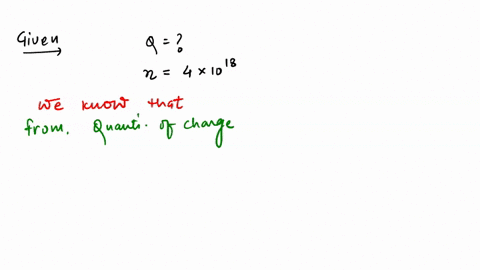 Given Q = ?
n = 4 × 10¹⁸
we know that
from. Quanti. of charge